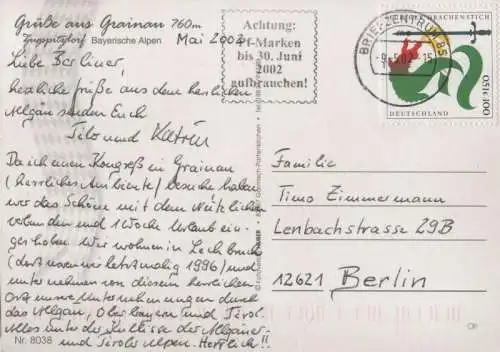 Grüße aus Grainau 760m
Zugspitzdorf Bayerische Alpen Mai 2002
Liebe Berliner,
herzliche Grüße aus dem herrlichen
Allgäu senden Euch
Tilo und Katrin
Da ich einen Kongreß in Grainau
(herrliches Ambiente) besucht habe,
wir das Schöne mit dem Nützlichen
verbunden und 1 Woche Urlaub ein-
geschoben. Wir wohnen in Lechbruck
(dort waren wir letztmalig 1996) und
unternehmen von diesem herrlichen
Ort unsere Unternehmungen durch
das Allgäu, Oberbayern und Tirol.
Alles unter der Kulisse der Allgäuer-
und Tiroler Alpen. Herrlich!!
Nr. 8038
Achtung:
Pf-Marken
bis 30. Juni
2002
aufbrauchen!
BRIEFZENTRUM 85
-8.-5.02-15
DRACHENSTICH
DEUTSCHLAND
0,51€ 100
Familie
Timo Zimmermann
Lenbachstrasse 29B
12621 Berlin